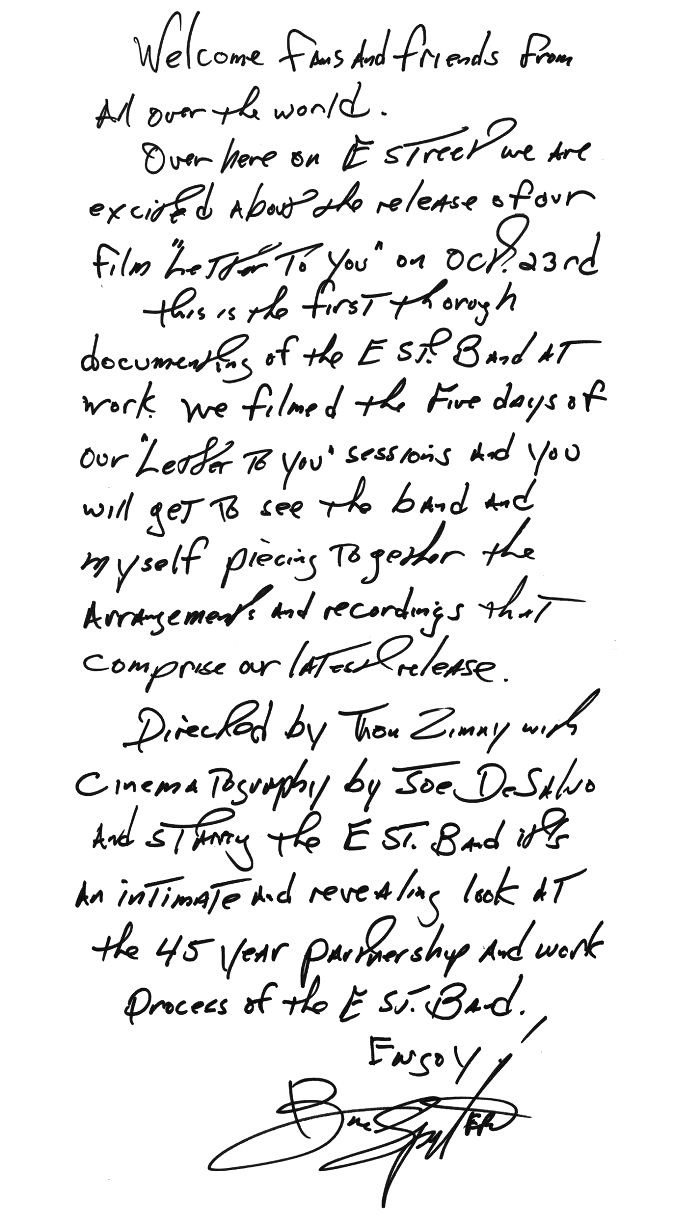 Welcome fans and friends from
All over the world.
Over here on E Street we are
excited about the release of our
film "Letter To You" on Oct. 23rd
this is the first thorogh
documenting of the E St. Band at
work. We filmed the five days of
our "Letter To You" sessions and you
will get to see the band and
myself piecing together the
arrangements and recordings that
comprise our latest release.
Directed by Thom Zimny with
Cinematography by Joe DeSalvo
and starring the E St. Band it's
an intimate and revealing look at
the 45 year partnership and work
process of the E St. Band.
Enjoy!
Bruce Springsteen